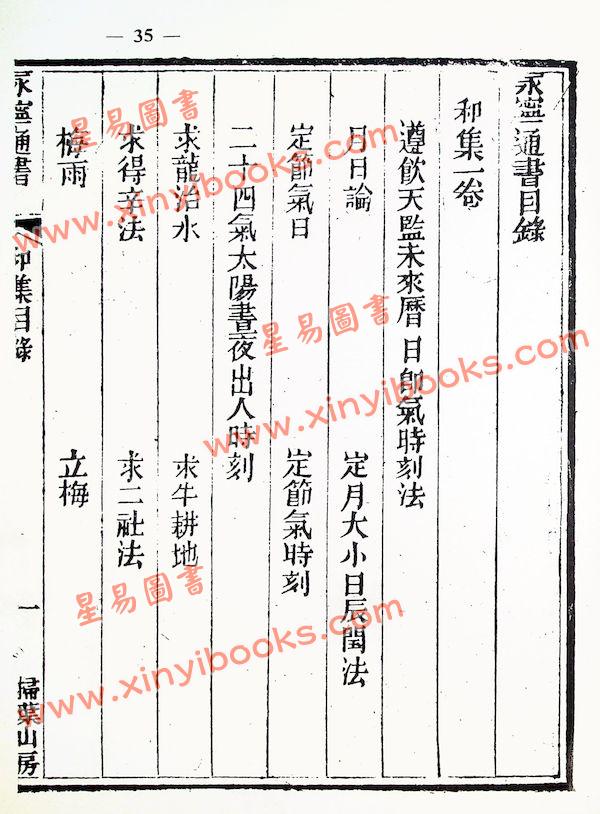 — 35 —
永寧通書目錄
和集一卷
遵飲天監未來曆 日卽氣時刻法
日日論 定月大小日辰閏法
定節氣日 定節氣時刻
二十四氣太陽晝夜出人時刻
求龍治水 求牛耕地
求得辛法 求二社法
梅雨 立梅
永寧通書 和集目錄 一 掃葉山房
星易圖書
www.xinyibooks.com
星易圖書
www.xinyibooks.com
星易圖書
www.xinyibooks.com